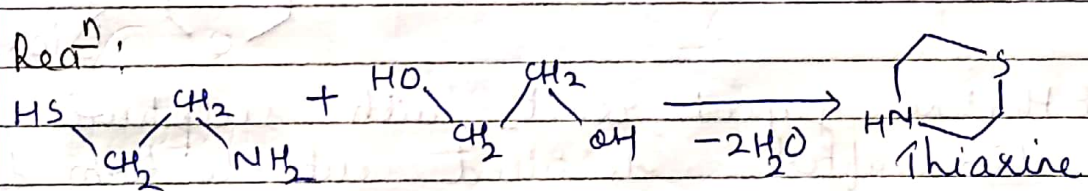 Reaⁿ :
HS CH₂ CH₂ NH₂ + HO CH₂ CH₂ OH −2H₂O HN S
Thiazine